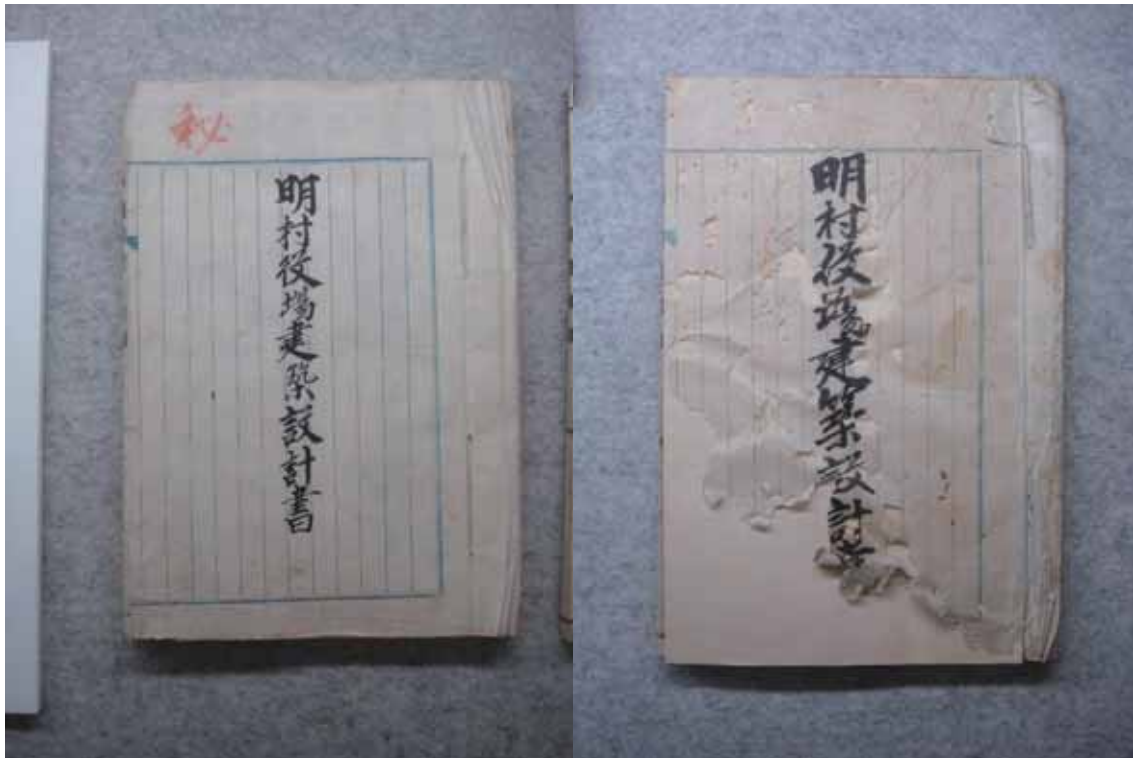 秘
明村役場建築設計書
明村役場建築設計書